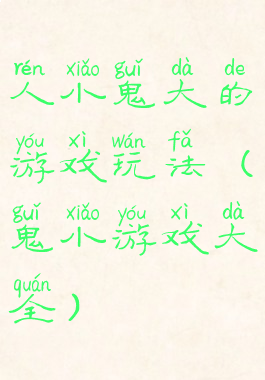 rén xiǎo guǐ dà de
人小鬼大的
yóu xì wán fǎ
游戏玩法（
guǐ xiǎo yóu xì dà
鬼小游戏大
quán
全）